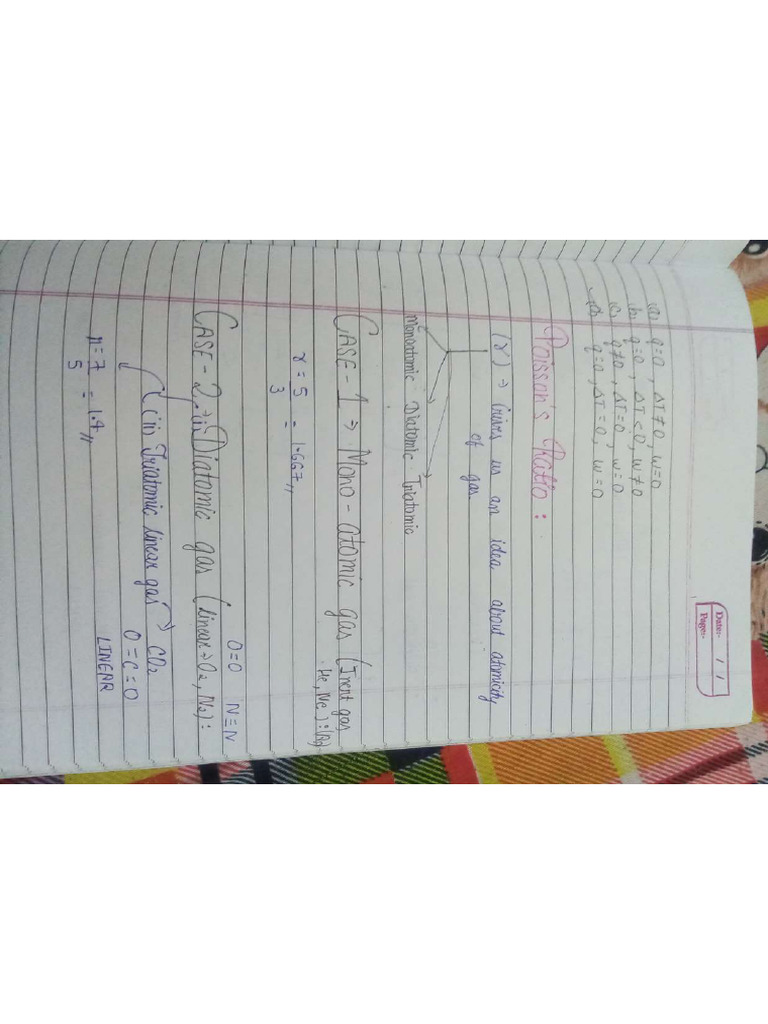 Date:- / /
Page:-
(a) q=0, ΔT≠0, w=0
(b) q=0, ΔT<0, w≠0
(c) q≠0, ΔT=0, w=0
(d) q=0, ΔT=0, w=0
Poisson's Ratio:
(γ) → Gives us an idea about atomicity
of gas.
Monoatomic Diatomic Triatomic
CASE-1 ⇒ Mono-atomic gas (Inert gas
He, Ne):
γ = 5/3 = 1.667,,
O=O N≡N
CASE-2 ⇒ (i) Diatomic gas (linear → O₂, N₂):
(ii) Triatomic linear gas → CO₂
O=C=O
LINEAR
γ = 7/5 = 1.4,,